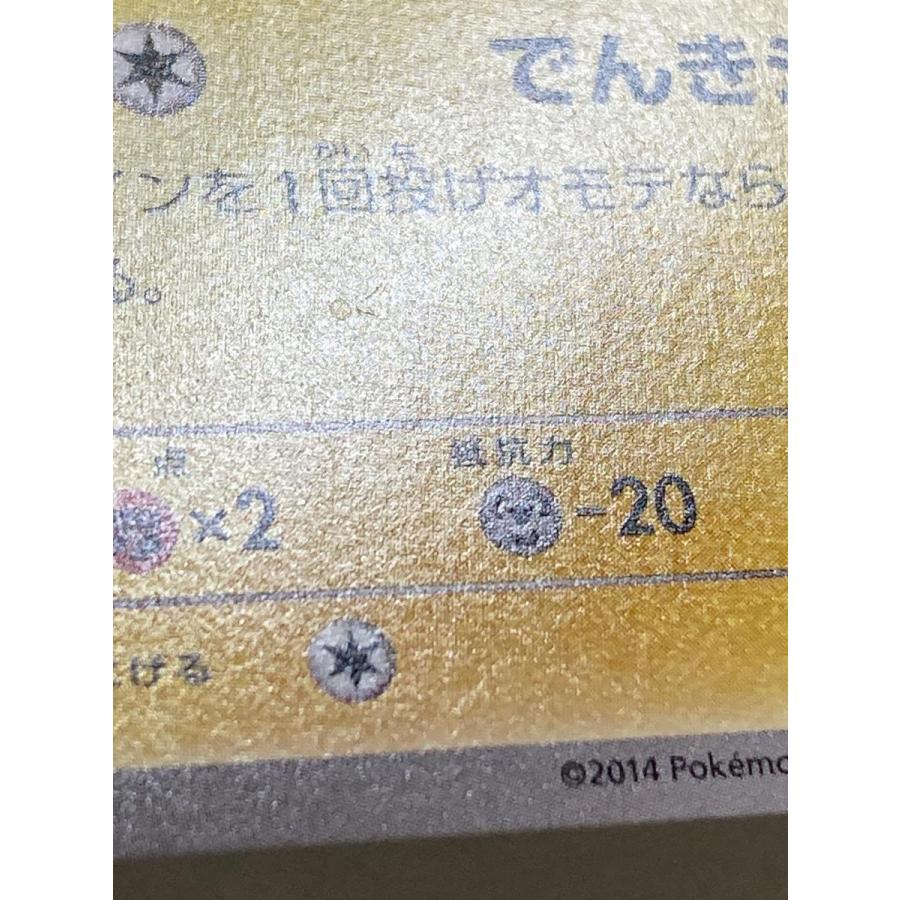 でんき
ンを1回投げオモテなら
かい な
る。
点 抵抗力
×2 -20
にげる
©2014 Pokémo